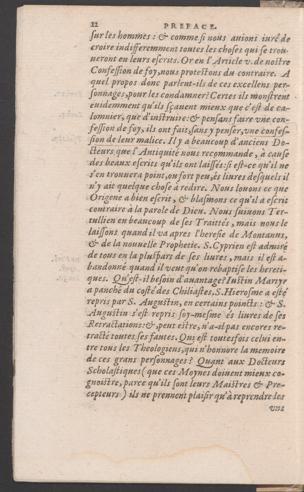 12 PREFACE.
sur les hommes: & comme si nous auions iuré de
croire indifferemment toutes les choses qui se trou-
ueront en leurs escrits. Or en l'Article v. de nostre
Confession de foy, nous protestons du contraire. A
quel propos donc parlent-ils de ces excellens per-
sonnages, pour les condamner? Certes ils monstrent
euidemment qu'ils sçauent mieux que c'est de ca-
lomnier, que d'instruire: & pensans faire vne con-
fession de foy, ils ont fait, sans y penser, vne confes-
sion de leur malice. Il y a beaucoup d'anciens Do-
cteurs que l'Antiquité nous recommande, à cause
des beaux escrits qu'ils ont laissés: si est-ce qu'il ne
s'en trouuera point, ou fort peu, és liures desquels il
n'y ait quelque chose à redire. Nous louons ce que
Origene a bien escrit, & blasmons ce qu'il a escrit
contraire à la parole de Dieu. Nous suiuons Ter-
tullien en beaucoup de ses Traittés, mais nous le
laissons quand il va apres l'heresie de Montanus,
& de la nouuelle Prophetie. S. Cyprien est admiré
de tous en la pluspart de ses liures, mais il est a-
bandonné quand il veut qu'on rebaptise les hereti-
ques. Qu'est-il besoin d'auantage? Iustin Martyr
a panché du costé des Chiliastes, S. Hierosme a esté
repris par S. Augustin, en certains poincts: & S.
Augustin s'est repris soy-mesme és liures de ses
Retractations: &, peut estre, n'a-il pas encores re-
tracté toutes ses fautes. Qui est toutesfois celui en-
tre tous les Theologiens, qui n'honnore la memoire
de ces grans personnages? Quant aux Docteurs
Scholastiques (que ces Moynes doiuent mieux co-
gnoistre, parce qu'ils sont leurs Maistres & Pre-
cepteurs) ils ne prennent plaisir qu'à reprendre les
vns